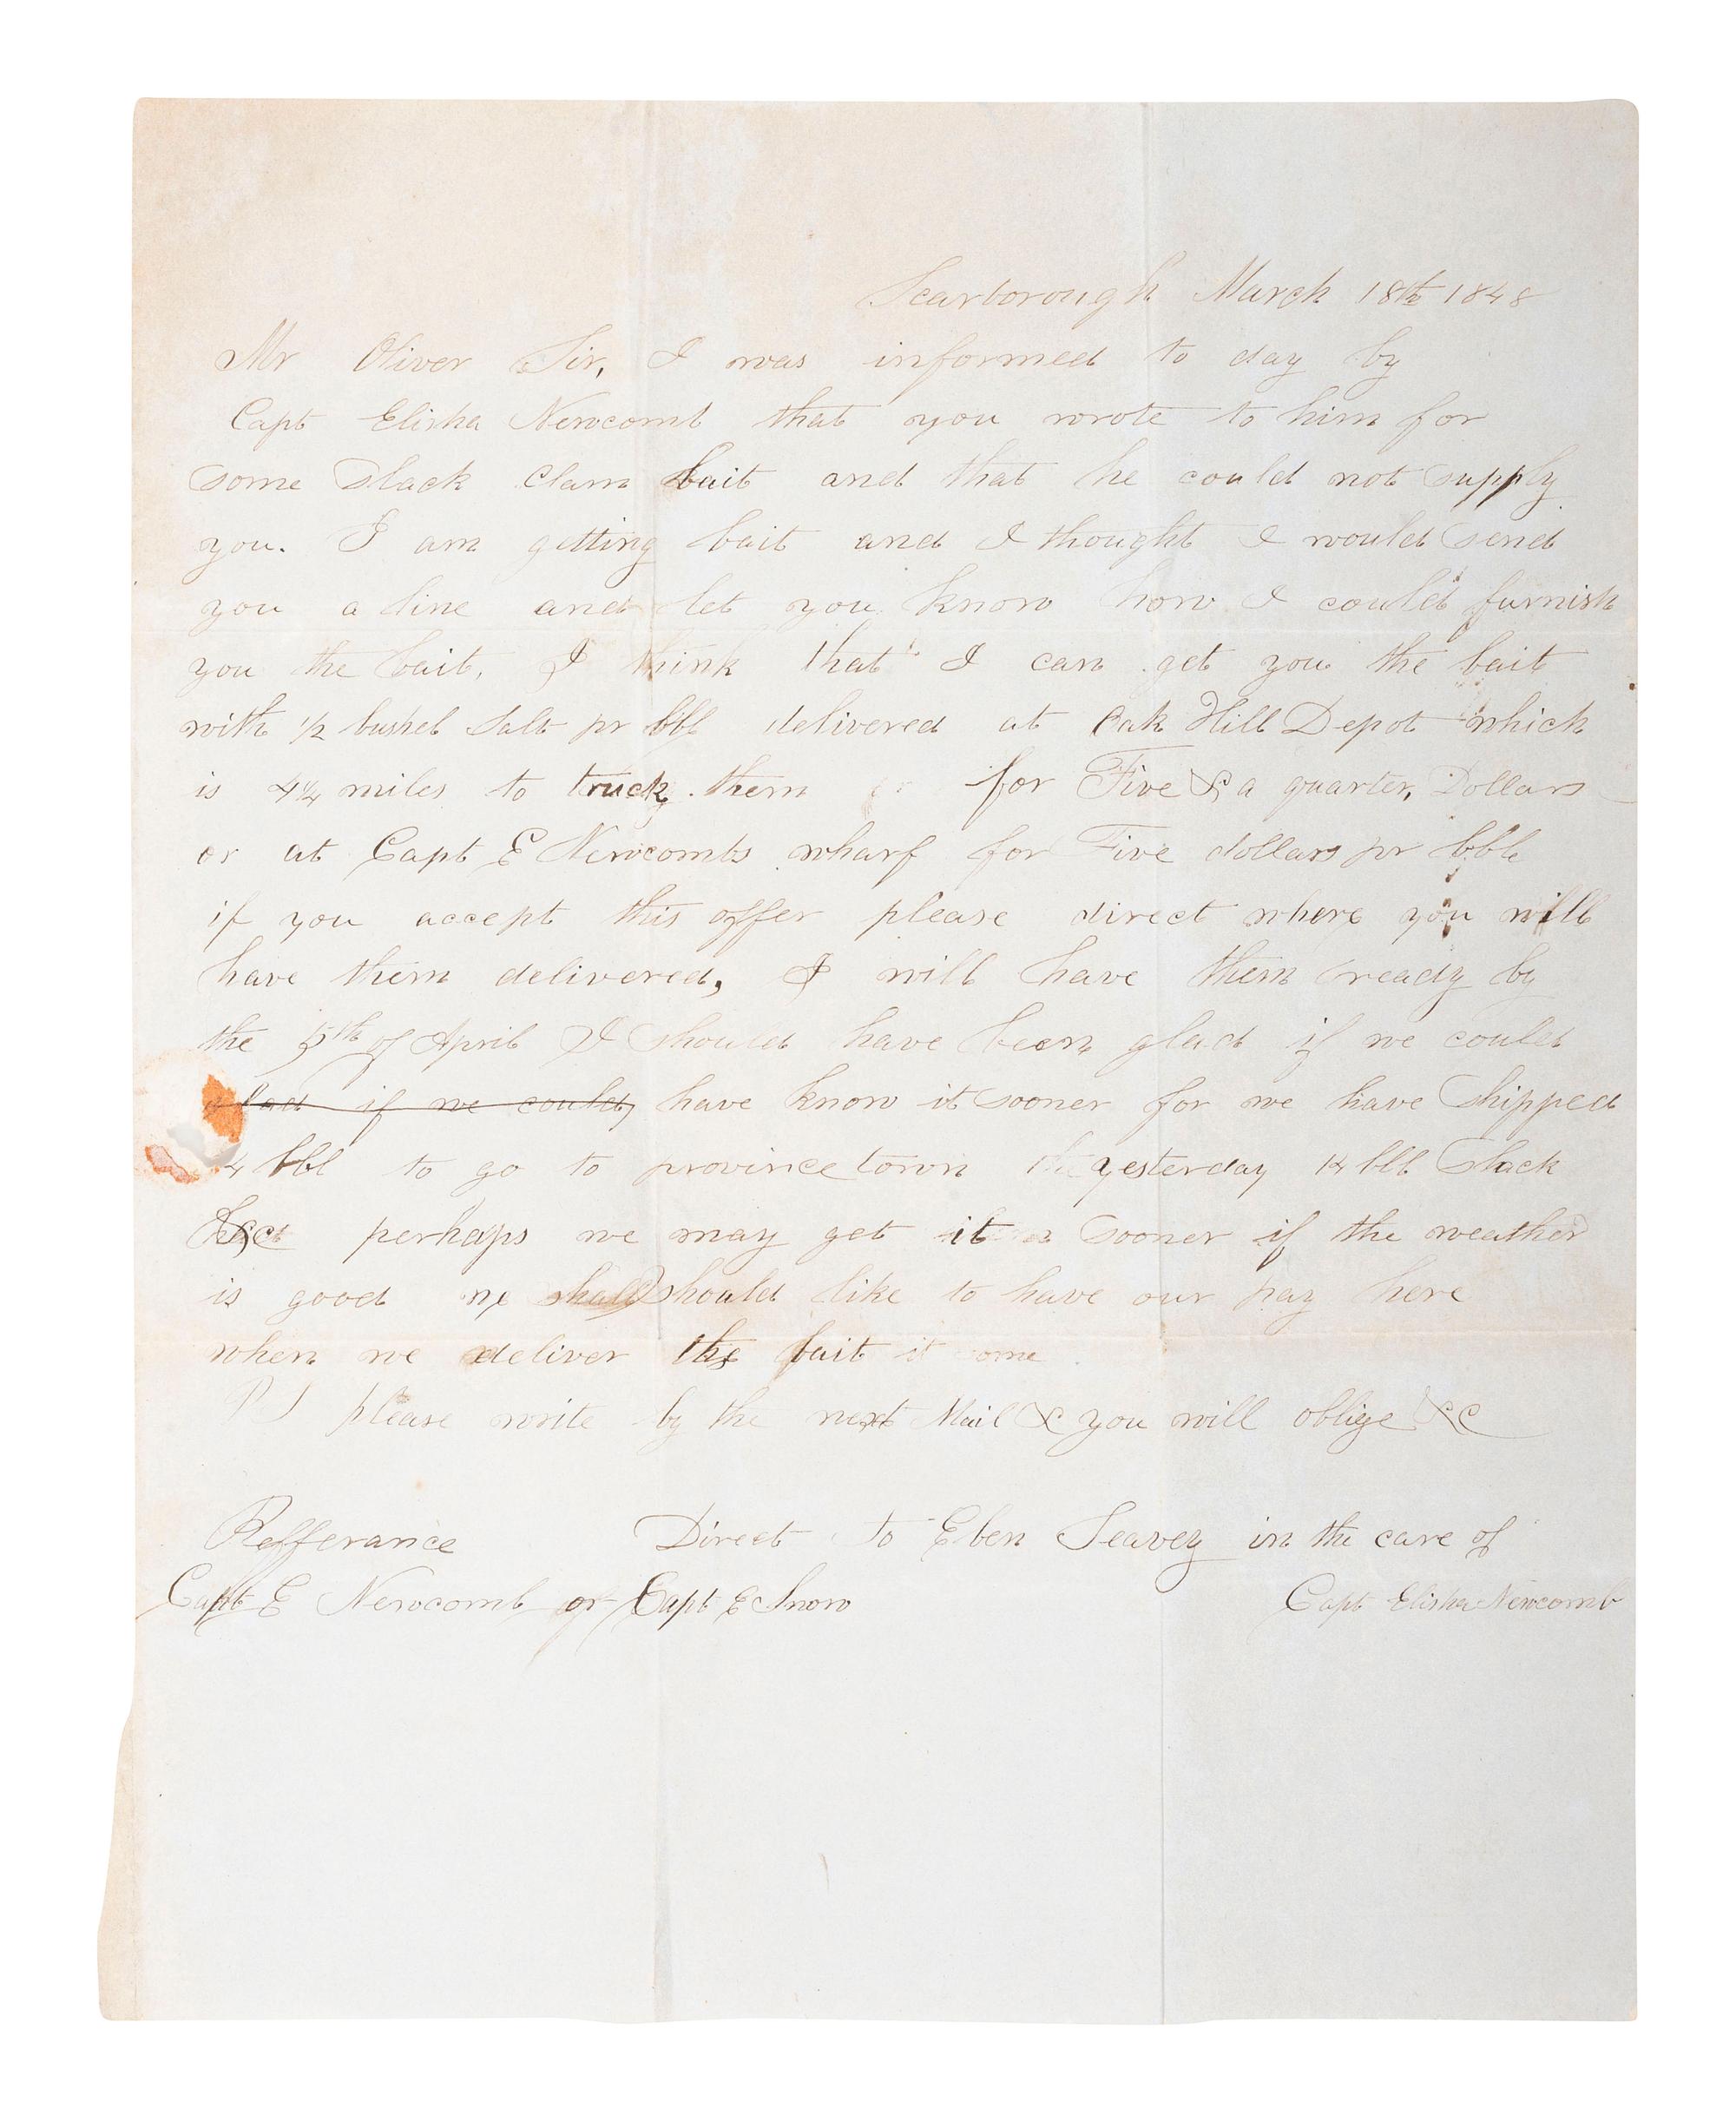 Scarborough March 18th 1848
Mr Oliver Sir, I was informed to day by
Capt Elisha Newcomb that you wrote to him for
some Slack Clam bait and that he could not supply
you. I am getting bait and I thought I would send
you a line and let you know how I could furnish
you the bait, I think that I can get you the bait
with 1/2 bushel Salt pr bbl delivered at Oak Hill Depot which
is 4 1/2 miles to truck them for Five & a quarter, Dollars
or at Capt E Newcombs wharf for Five dollars pr bbl
if you accept this offer please direct where you will
have them delivered, I will have them ready by
the 5th of April I should have been glad if we could
glad if we could, have know it sooner for we have Shipped
4 bbl to go to provincetown yesterday 14 bbl Slack
perhaps we may get it sooner if the weather
is good we shall should like to have our pay here
when we deliver the bait
PS please write by the next Mail & you will oblige &c
Refferance Direct to Eben Seavey in the care of
Capt E Newcomb or Capt E Snow Capt Elisha Newcomb